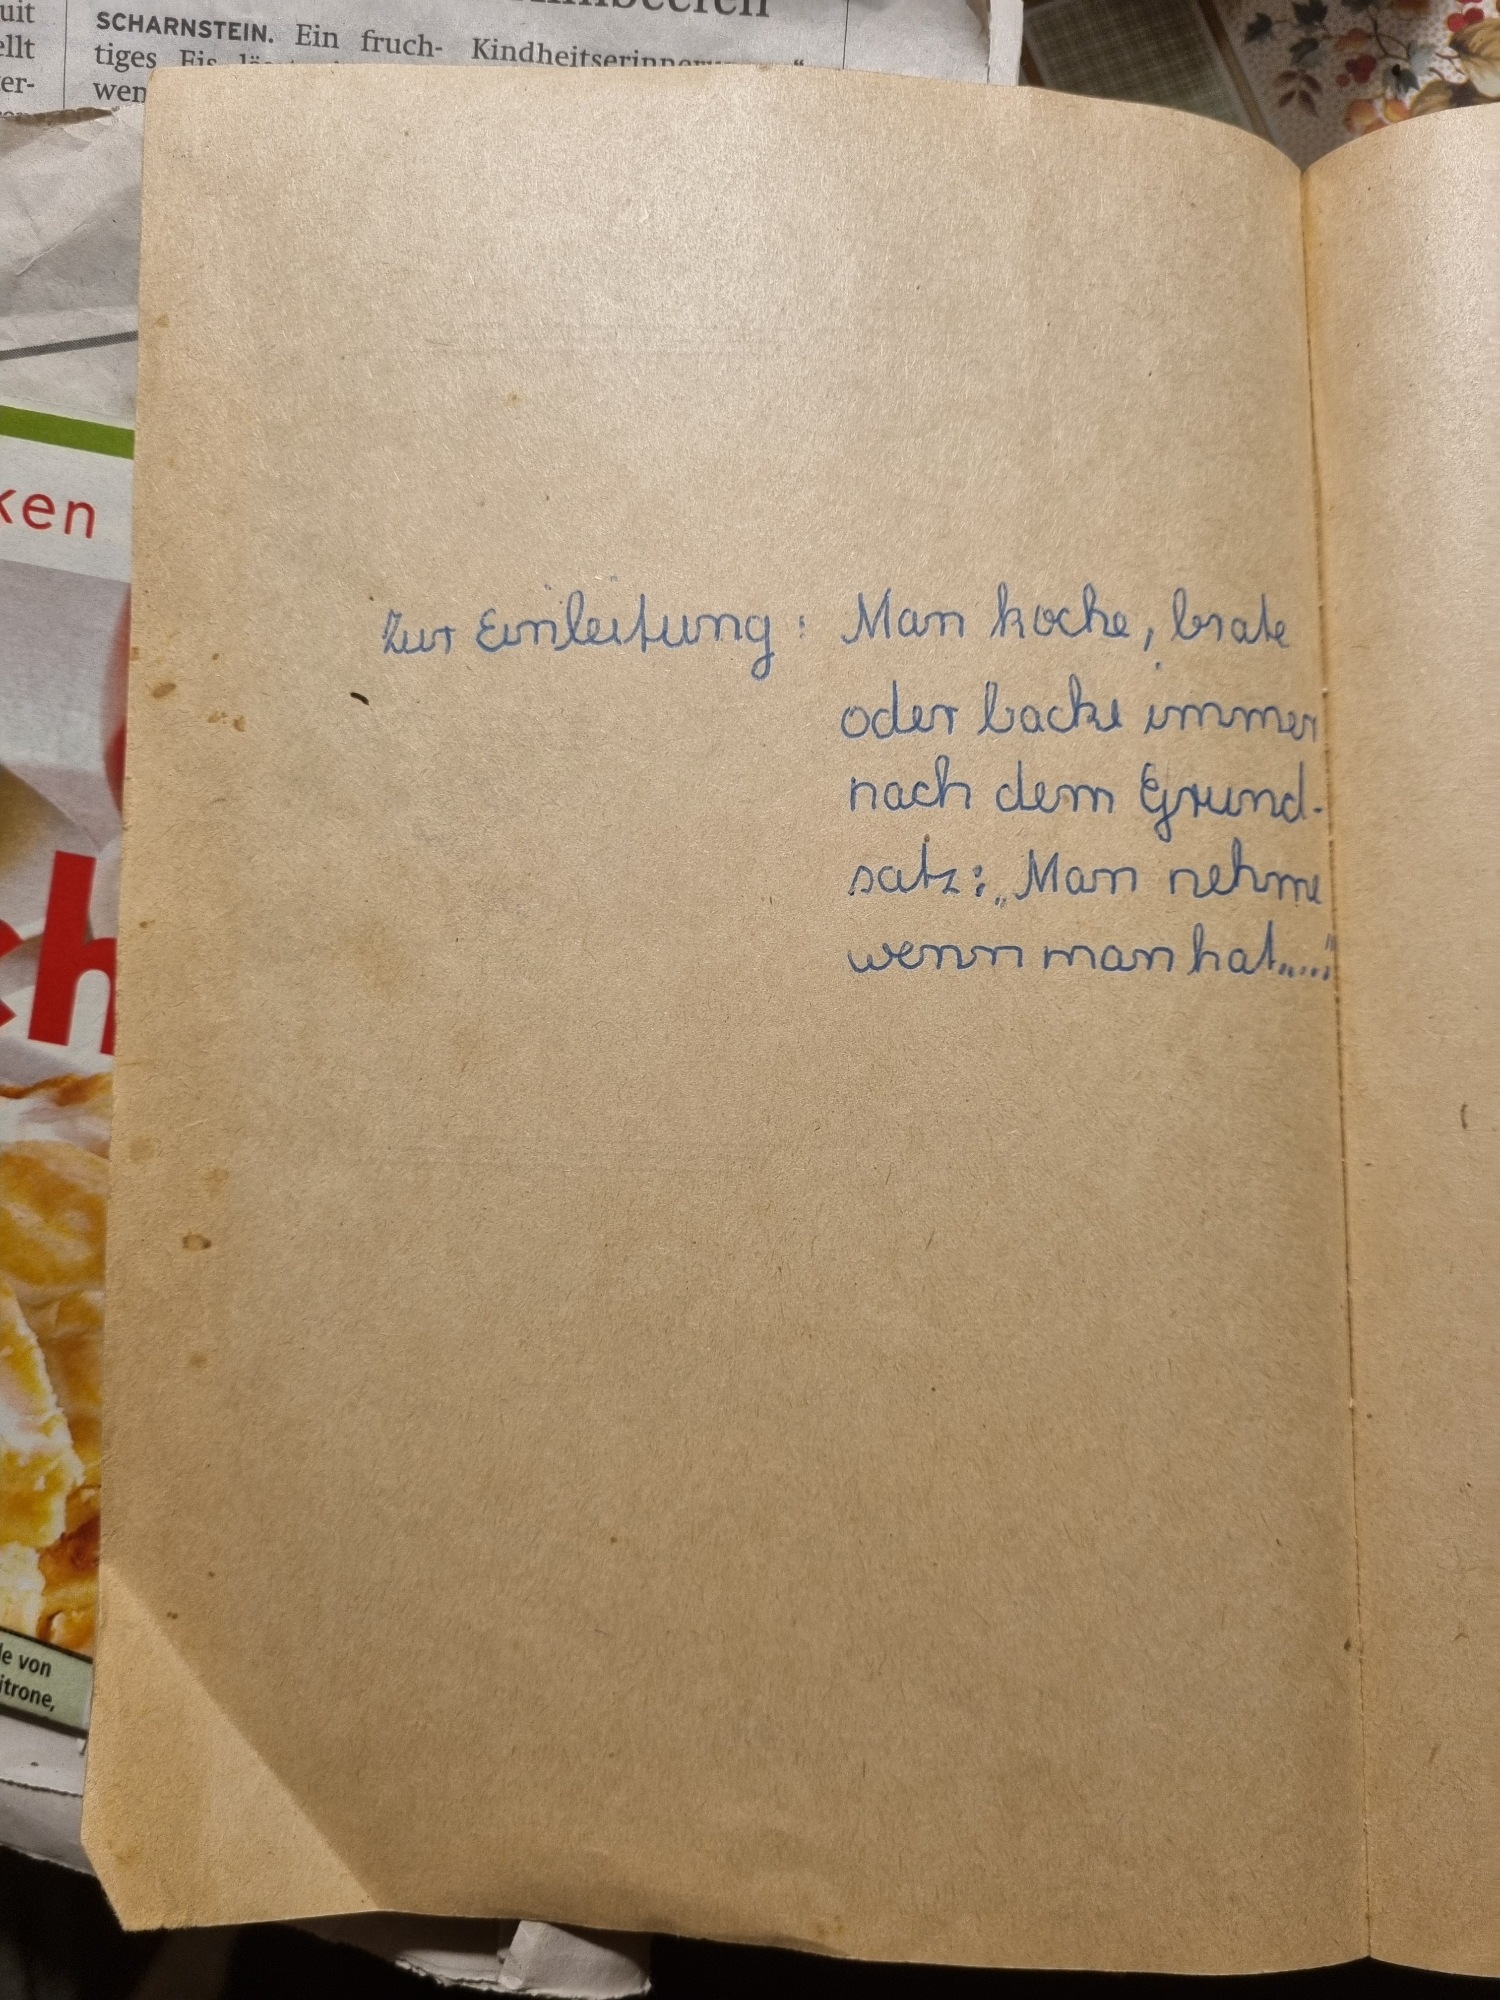 uit
ellt
er-
SCHARNSTEIN. Ein fruch-
tiges Eis
wen
Kindheitserinnerungen.“
ken
ch
Zur Einleitung: Man koche, brate
oder backe immer
nach dem Grund-
satz: „Man nehme
wenn man hat....."
le von
itrone,